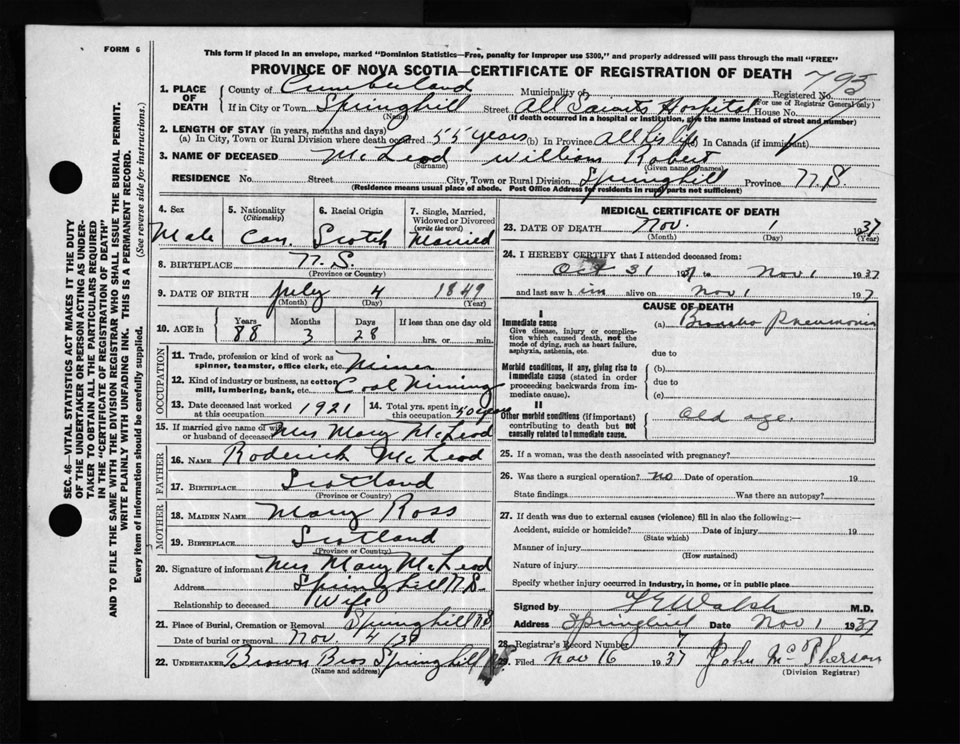 FORM 6
This form if placed in an envelope, marked "Dominion Statistics—Free, penalty for improper use $300," and properly addressed will pass through the mail "FREE"
PROVINCE OF NOVA SCOTIA—CERTIFICATE OF REGISTRATION OF DEATH 793
1. PLACE OF DEATH County of Cumberland Municipality of Registered No.
(For use of Registrar General only)
If in City or Town Springhill Street All Saints Hospital House No.
(Name) (If death occurred in a hospital or institution, give the name instead of street and number)
2. LENGTH OF STAY (in years, months and days)
(a) In City, Town or Rural Division where death occurred 55 years (b) In Province All his life (c) In Canada (if immigrant)
3. NAME OF DECEASED McLeod William Robert
(Surname) (Given name or names)
RESIDENCE No. Street City, Town or Rural Division Springhill Province N.S.
(Residence means usual place of abode. Post Office Address for residents in rural parts not sufficient)
4. Sex Male
5. Nationality (Citizenship) Can.
6. Racial Origin Scotch
7. Single, Married, Widowed or Divorced (write the word) Married
8. BIRTHPLACE N.S.
(Province or Country)
9. DATE OF BIRTH July 4 1849
(Month) (Day) (Year)
10. AGE in Years Months Days If less than one day old
88 3 28 hrs. or min.
OCCUPATION
11. Trade, profession or kind of work as spinner, teamster, office clerk, etc. Miner
12. Kind of industry or business, as cotton mill, lumbering, bank, etc. Coal Mining
13. Date deceased last worked at this occupation 1921
14. Total yrs. spent in this occupation 50 years
15. If married give name of wife or husband of deceased Mrs Mary McLeod
FATHER
16. NAME Roderick McLeod
17. BIRTHPLACE Scotland
(Province or Country)
MOTHER
18. MAIDEN NAME Mary Ross
19. BIRTHPLACE Scotland
(Province or Country)
20. Signature of informant Mrs Mary McLeod
Address Springhill N.S.
Relationship to deceased Wife
21. Place of Burial, Cremation or Removal Springhill NS
Date of burial or removal Nov. 4/37
22. UNDERTAKER Brown Bros Springhill
(Name and address)
MEDICAL CERTIFICATE OF DEATH
23. DATE OF DEATH Nov. 1 1937
(Month) (Day) (Year)
24. I HEREBY CERTIFY that I attended deceased from:
Oct 31 1937 to Nov 1 1937
and last saw him alive on Nov 1 1937
CAUSE OF DEATH
I
Immediate cause
Give disease, injury or complication which caused death, not the mode of dying, such as heart failure, asphyxia, asthenia, etc.
(a) Broncho Pneumonia
due to
Morbid conditions, if any, giving rise to immediate cause (stated in order proceeding backwards from immediate cause).
(b)
due to
(c)
II
Other morbid conditions (if important) contributing to death but not causally related to immediate cause.
Old age.
25. If a woman, was the death associated with pregnancy?
26. Was there a surgical operation? No Date of operation 19
State findings Was there an autopsy?
27. If death was due to external causes (violence) fill in also the following:—
Accident, suicide or homicide? Date of injury 19
(State which)
Manner of injury
(How sustained)
Nature of injury
Specify whether injury occurred in industry, in home, or in public place
Signed by Walsh M.D.
Address Springhill Date Nov 1 1937
28. Registrar's Record Number 7
29. Filed Nov 16 1937 John McPherson
(Division Registrar)
SEC. 46—VITAL STATISTICS ACT MAKES IT THE DUTY
OF THE UNDERTAKER OR PERSON ACTING AS UNDER-
TAKER TO OBTAIN ALL THE PARTICULARS REQUIRED
IN THE "CERTIFICATE OF REGISTRATION OF DEATH"
AND TO FILE THE SAME WITH THE DIVISION REGISTRAR WHO SHALL ISSUE THE BURIAL PERMIT.
WRITE PLAINLY WITH UNFADING INK. THIS IS A PERMANENT RECORD.
Every item of information should be carefully supplied. (See reverse side for instructions.)